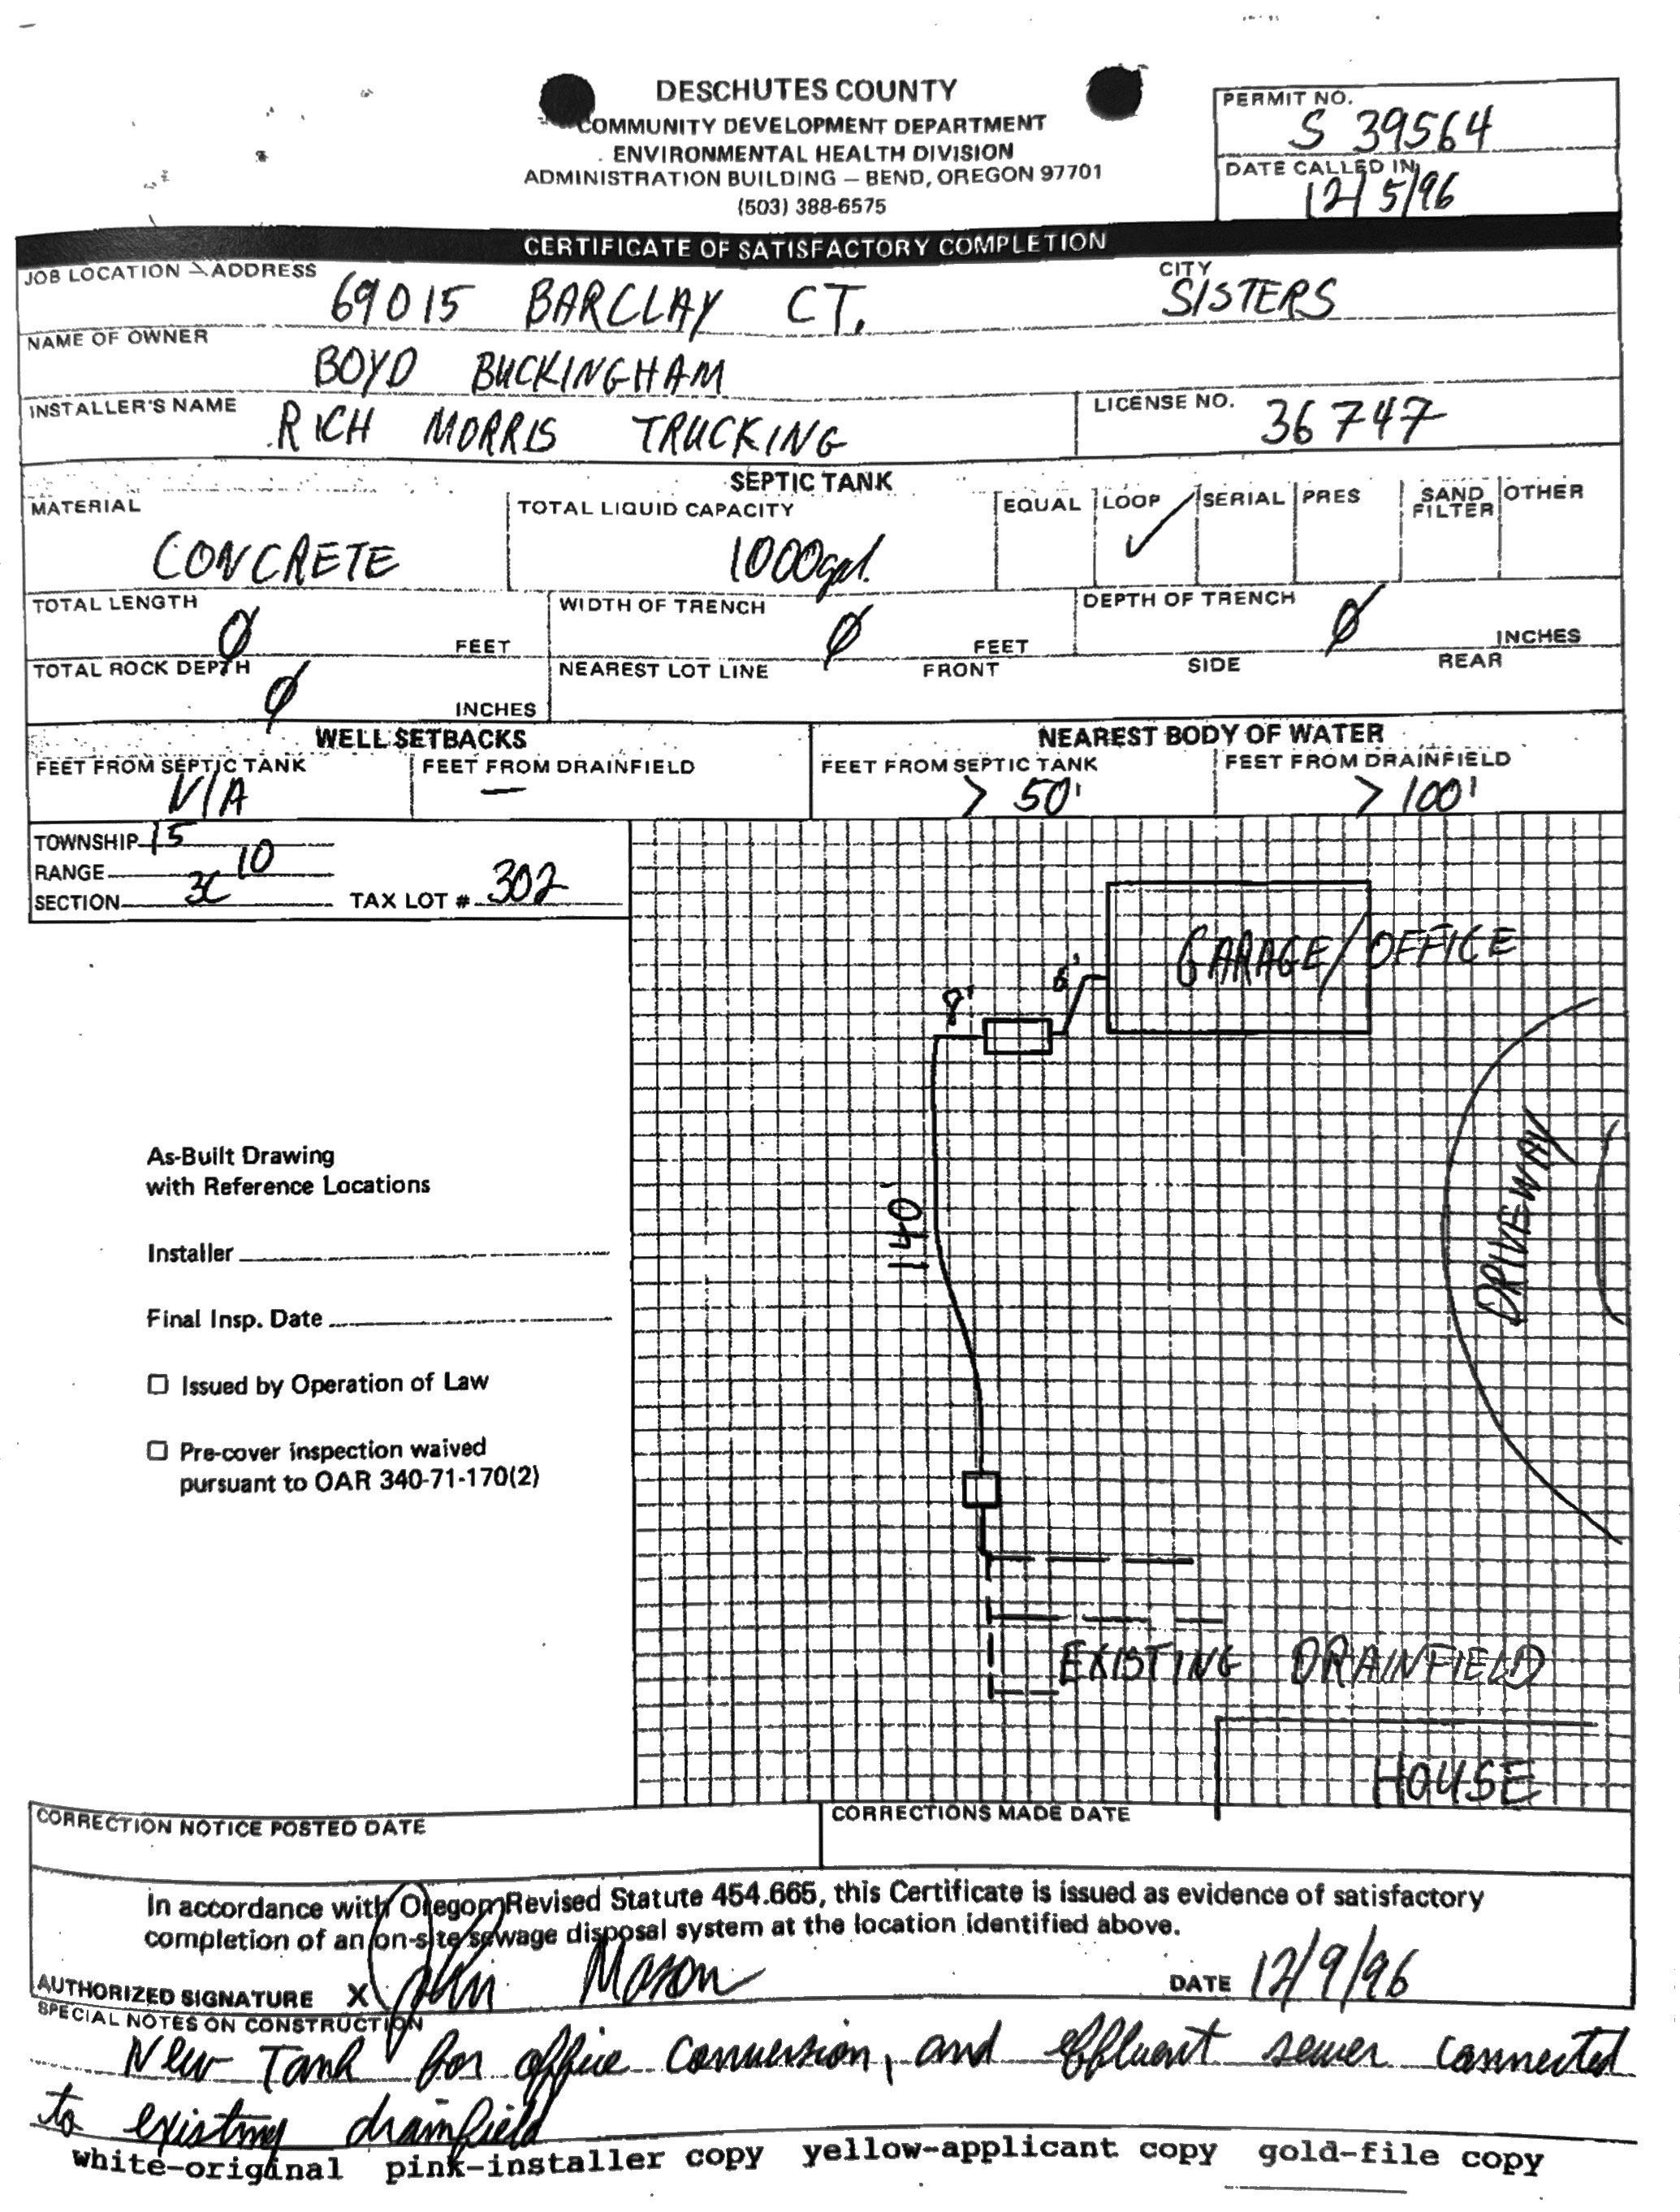 DESCHUTES COUNTY
COMMUNITY DEVELOPMENT DEPARTMENT
ENVIRONMENTAL HEALTH DIVISION
ADMINISTRATION BUILDING — BEND, OREGON 97701
(503) 388-6575
PERMIT NO.
S 39564
DATE CALLED IN
12/5/96
CERTIFICATE OF SATISFACTORY COMPLETION
JOB LOCATION — ADDRESS 69015 BARCLAY CT. CITY SISTERS
NAME OF OWNER BOYD BUCKINGHAM
INSTALLER'S NAME RICH MORRIS TRUCKING LICENSE NO. 36747
SEPTIC TANK
MATERIAL TOTAL LIQUID CAPACITY EQUAL LOOP ✓ SERIAL PRES SAND FILTER OTHER
CONCRETE 1000gal.
TOTAL LENGTH 0 FEET WIDTH OF TRENCH 0 FEET DEPTH OF TRENCH 0 INCHES
TOTAL ROCK DEPTH 0 INCHES NEAREST LOT LINE FRONT SIDE REAR
WELL SETBACKS NEAREST BODY OF WATER
FEET FROM SEPTIC TANK FEET FROM DRAINFIELD FEET FROM SEPTIC TANK FEET FROM DRAINFIELD
N/A — > 50' > 100'
TOWNSHIP 15
RANGE 10
SECTION TAX LOT # 302
GARAGE/OFFICE
8'
140'
DRIVEWAY
As-Built Drawing
with Reference Locations
Installer
Final Insp. Date
☐ Issued by Operation of Law
☐ Pre-cover inspection waived
pursuant to OAR 340-71-170(2)
EXISTING DRAINFIELD
HOUSE
CORRECTION NOTICE POSTED DATE CORRECTIONS MADE DATE
In accordance with Oregon Revised Statute 454.665, this Certificate is issued as evidence of satisfactory
completion of an on-site sewage disposal system at the location identified above.
AUTHORIZED SIGNATURE X Mason DATE 12/9/96
SPECIAL NOTES ON CONSTRUCTION
New Tank for office conversion, and effluent sewer connected
to existing drainfield
white-original pink-installer copy yellow-applicant copy gold-file copy